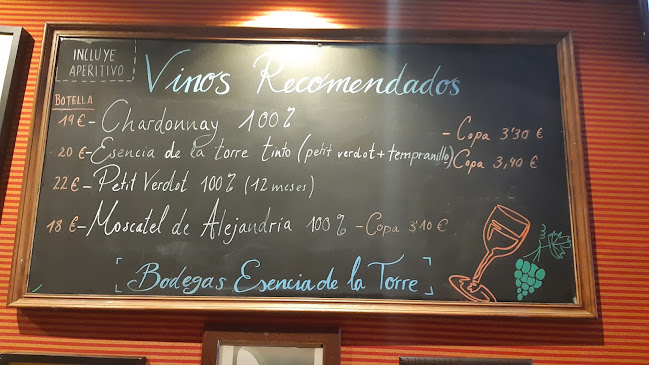 INCLUYE
APERITIVO
Vinos Recomendados
BOTELLA
19€- Chardonnay 100% - Copa 3'30 €
20 €- Esencia de la torre tinto (petit verdot + tempranillo) Copa 3,40 €
22 €- Petit Verdot 100% (12 meses)
18 €- Moscatel de Alejandría 100% - Copa 3'10 €
[Bodegas Esencia de la Torre]